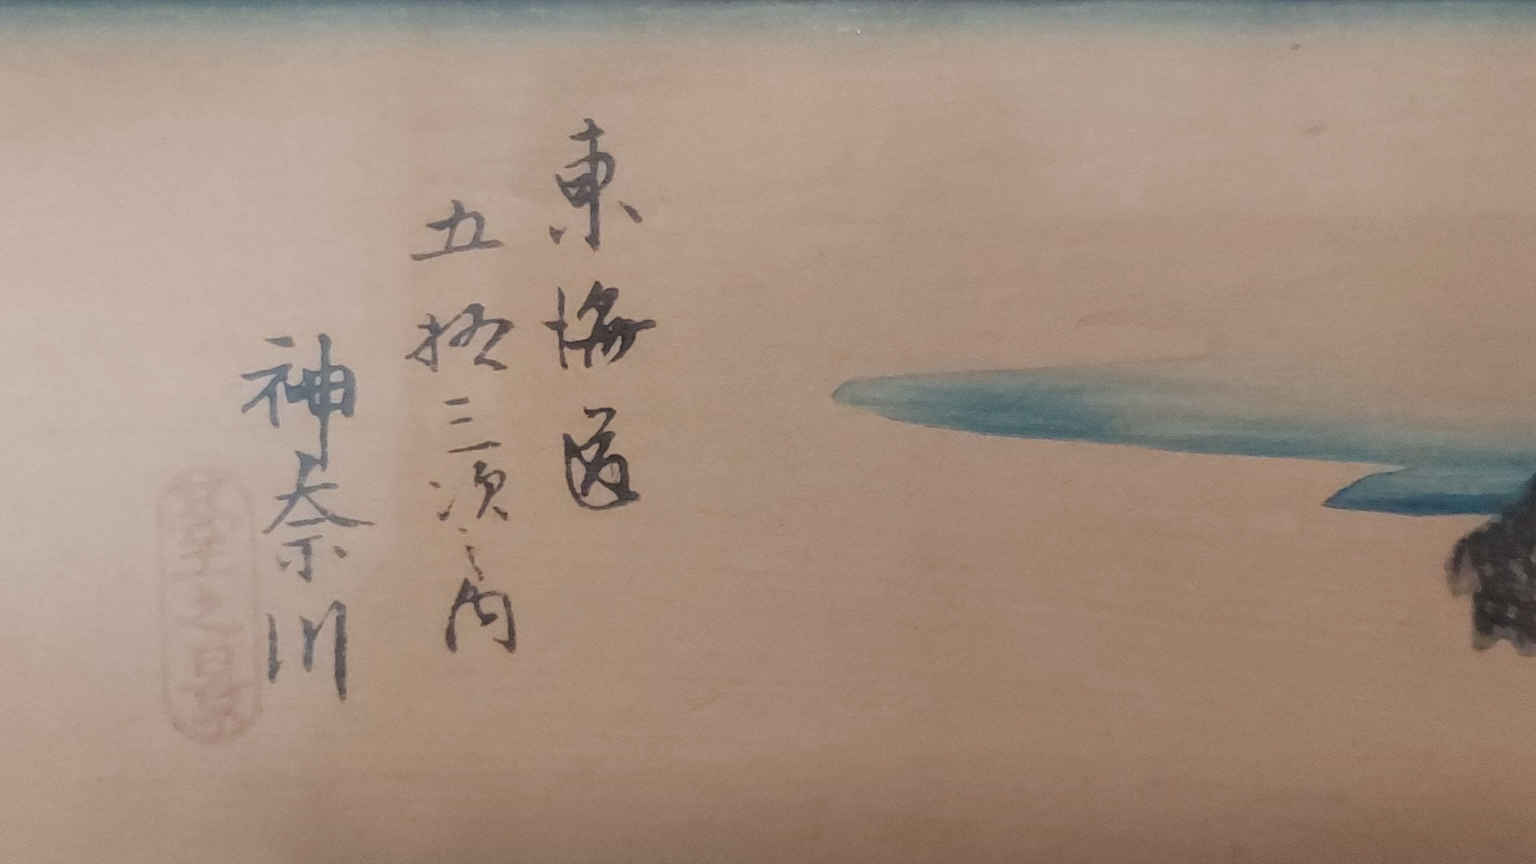 東海道
五拾三次之内
神奈川